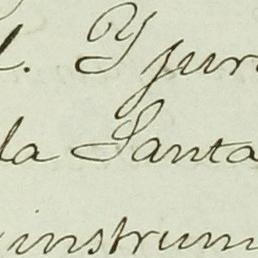 l. Y jur
la Santa
instrum